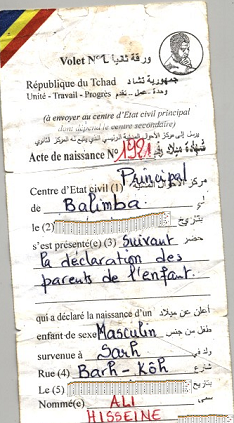 Volet N°2 ورقة ثانية
République du Tchad جمهورية تشاد
Unité - Travail - Progrès وحدة - عمل - تقدم
(à envoyer au centre d'Etat civil principal
dont dépend le centre secondaire)
Acte de naissance N° 1921 شهادة ميلاد رقم
Centre d'Etat civil (1) Principal
de Balimba
le (2) بتاريخ
s'est présenté(e) (3) Suivant حضر
la déclaration des
parents de l'enfant.
qui a déclaré la naissance d'un أعلن عن ميلاد
enfant de sexe Masculin طفل من جنس
survenue à Sarh ولد في
Rue (4) Barh-Kôh شارع
Le (5) بتاريخ
Nommé(e) ALI يسمى
HISSEINE